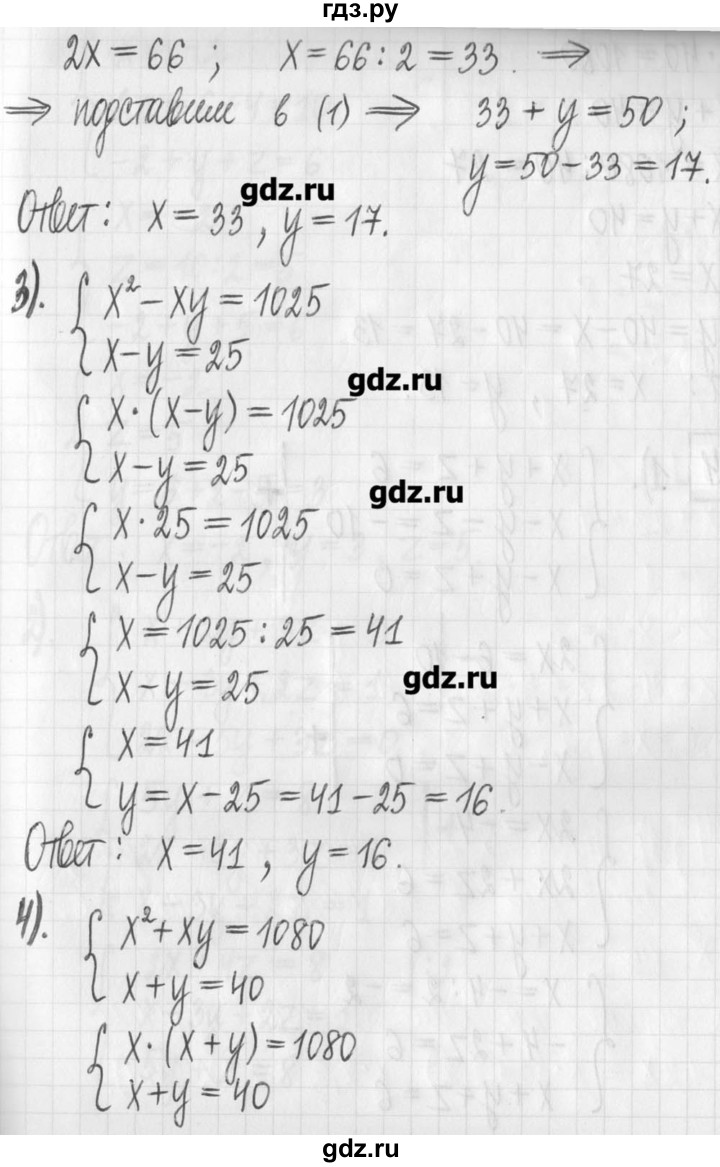 гдз.ру
2x = 66 ; x = 66 : 2 = 33. ⟹
⟹ подставим в (1) ⟹ 33 + y = 50 ;
y = 50 - 33 = 17.
gdz.ru
Ответ: x = 33 , y = 17.
3). { x² - xy = 1025
x - y = 25
gdz.ru
{ x · (x - y) = 1025
x - y = 25
gdz.ru
{ x · 25 = 1025
x - y = 25
{ x = 1025 : 25 = 41
x - y = 25
gdz.ru
{ x = 41
y = x - 25 = 41 - 25 = 16.
Ответ: x = 41 , y = 16.
4). { x² + xy = 1080
x + y = 40
{ x · (x + y) = 1080
x + y = 40
gdz.ru